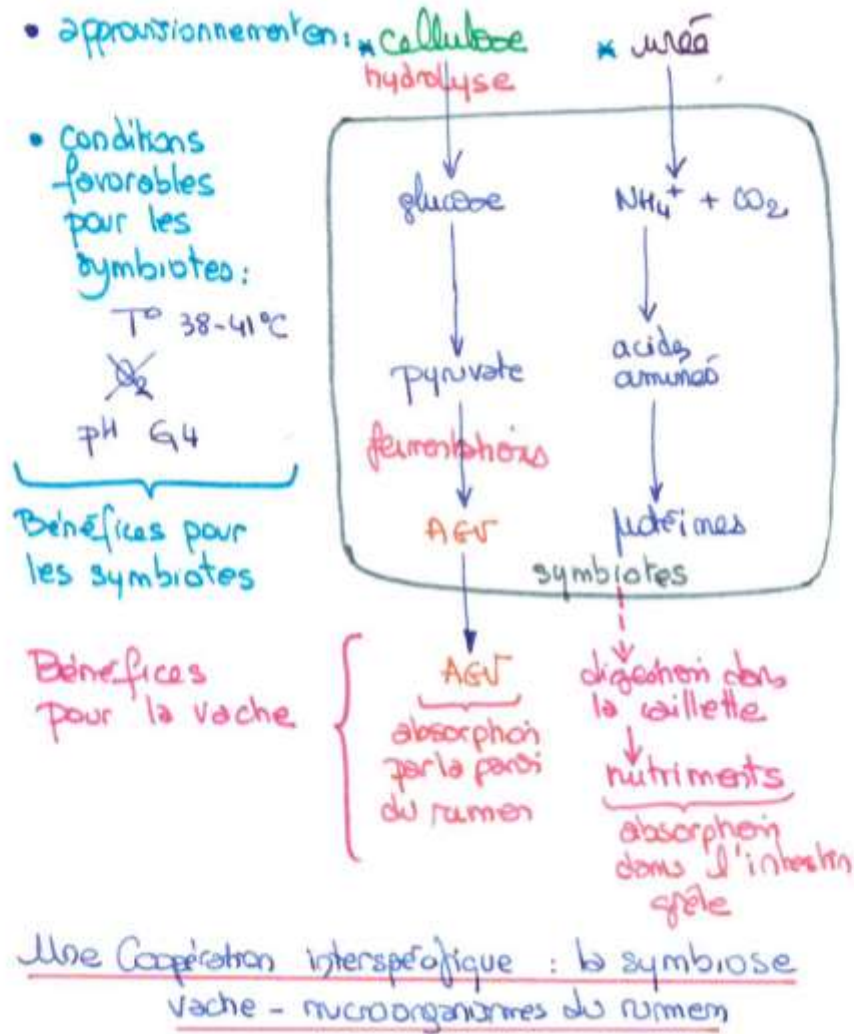 • approvisionnement en : * cellulose * urée
hydrolyse
• conditions
favorables
pour les
symbiotes :
T° 38-41°C
O₂
pH 6,4
Bénéfices pour
les symbiotes
glucose
pyruvate
fermentations
AGV
NH₄⁺ + CO₂
acides
aminés
protéines
symbiotes
Bénéfices
pour la vache
AGV
absorption
par la paroi
du rumen
digestion dans
la caillette
nutriments
absorption
dans l'intestin
grêle
Une Coopération interspécifique : la symbiose
vache - microorganismes du rumen